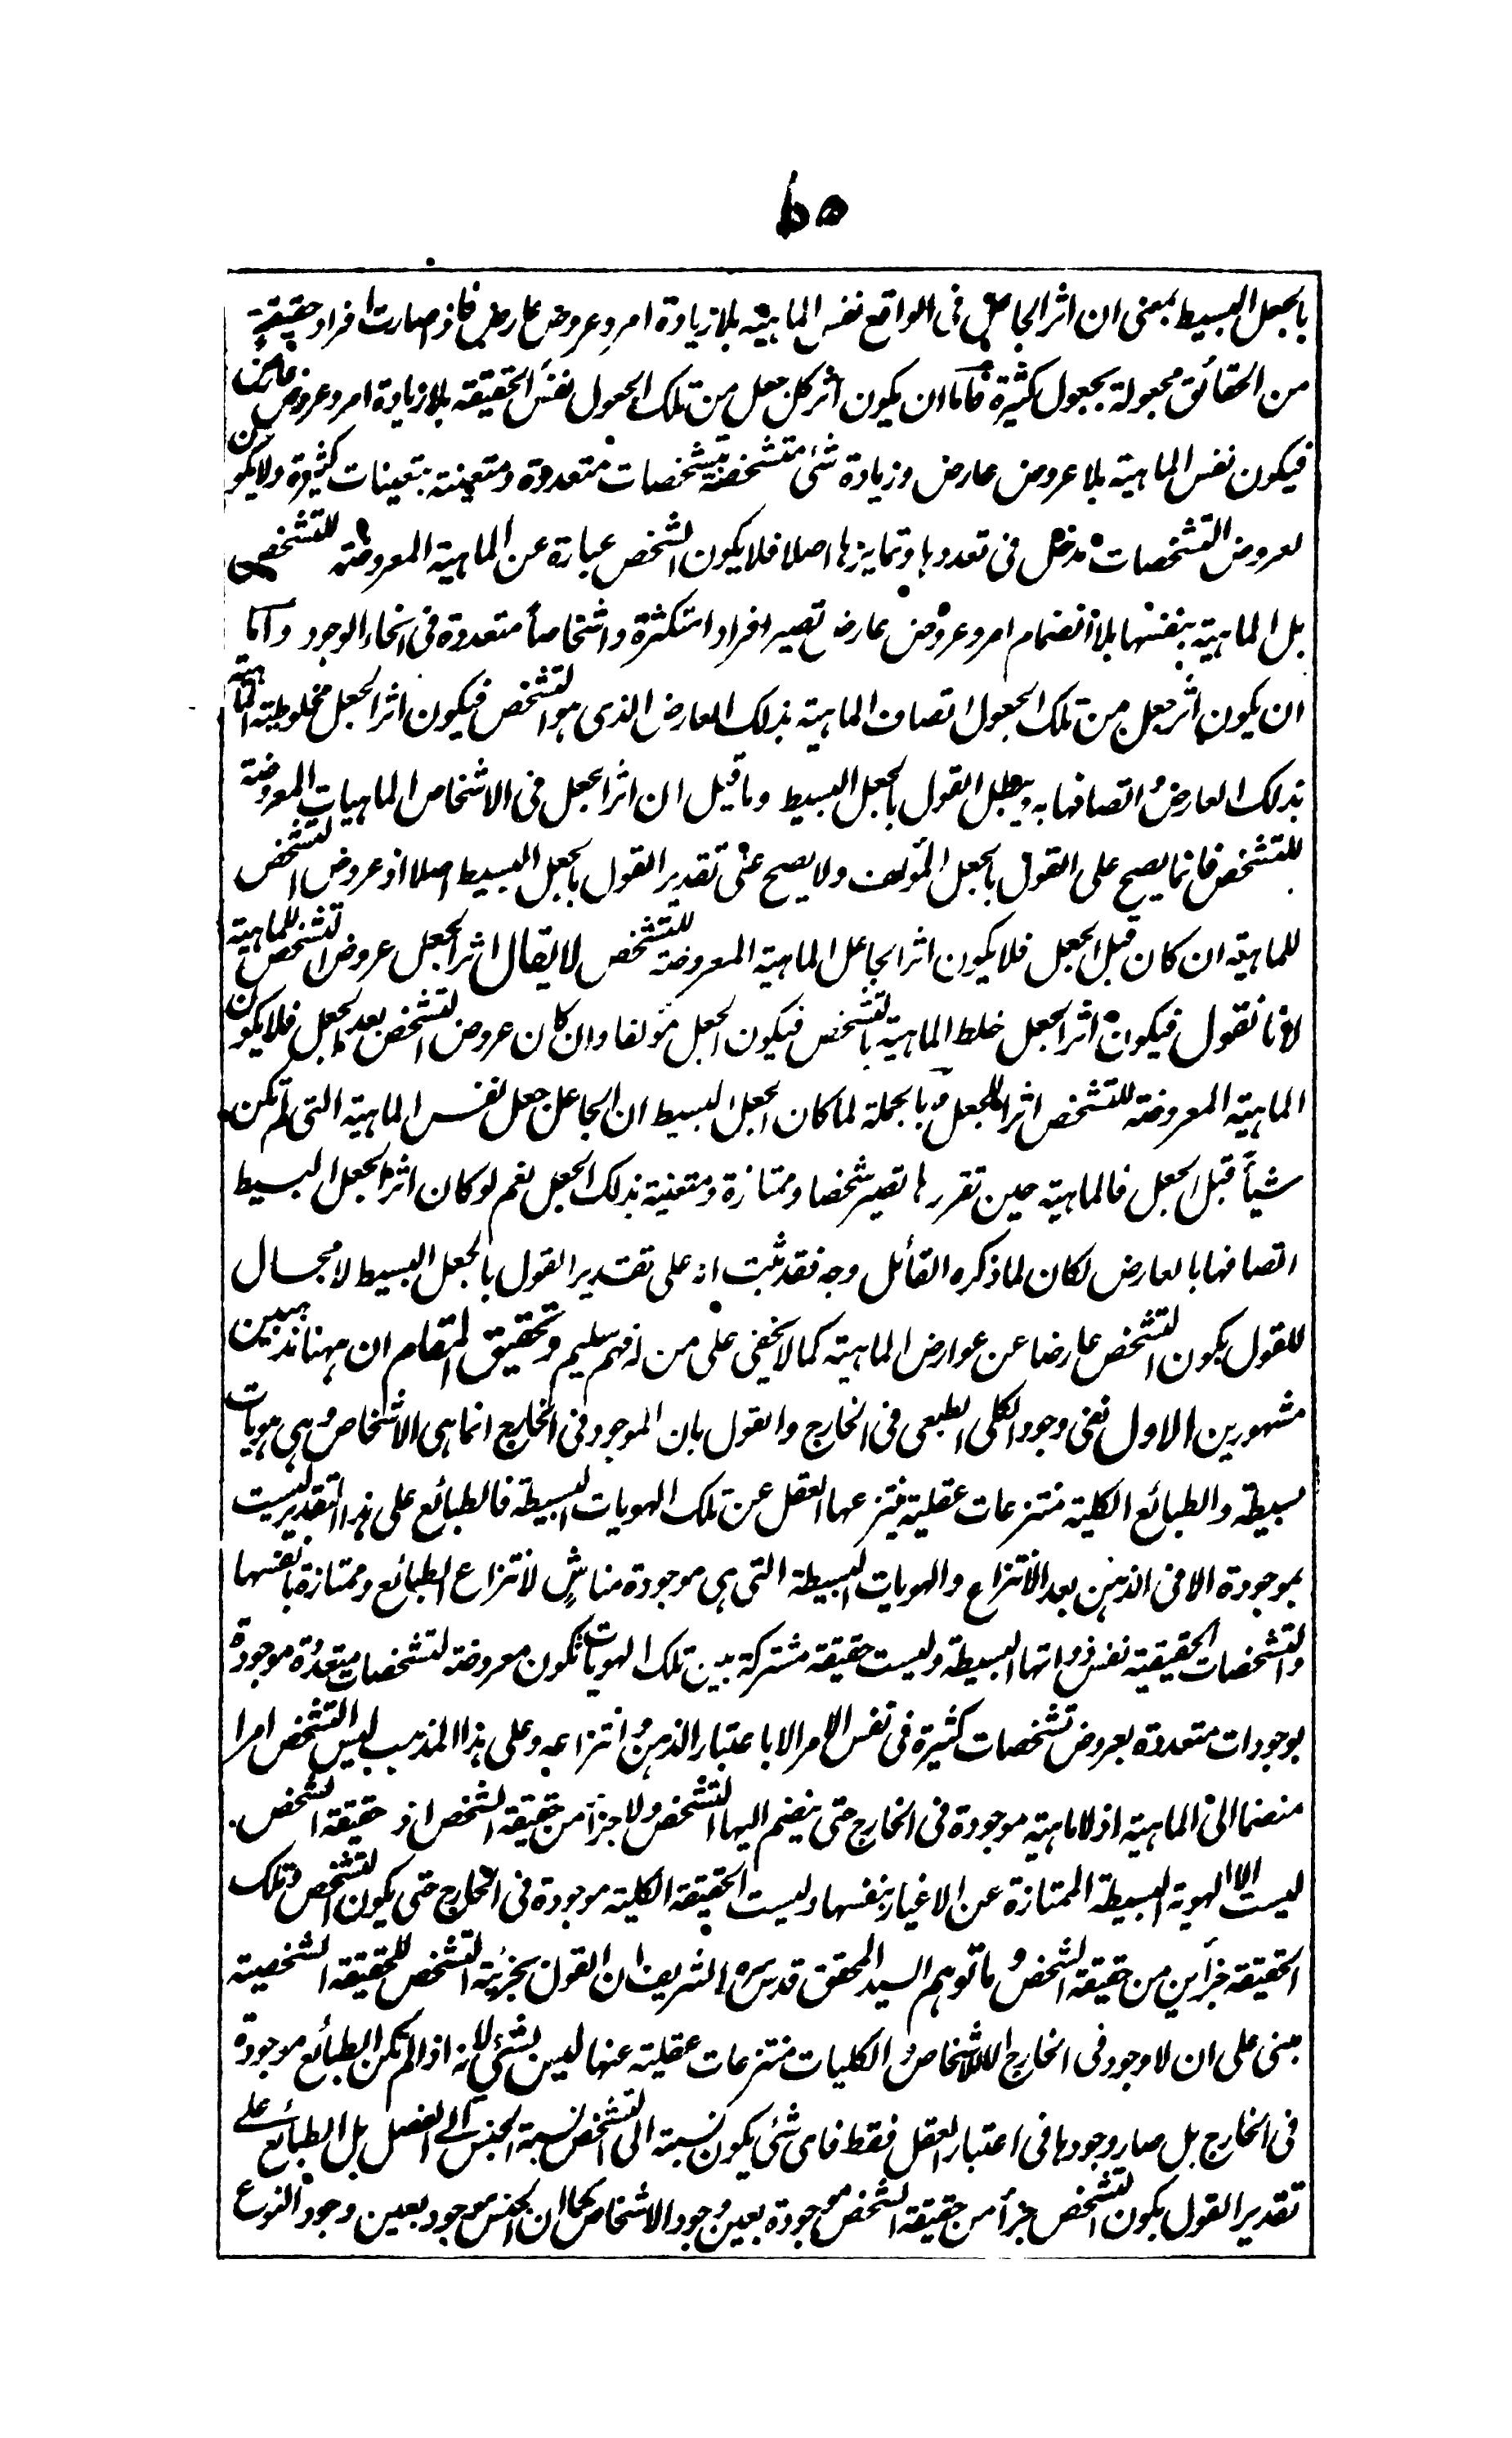 ٥٥
بالجعل البسيط بمعنى ان اثر الجاعل فى الواقع نفس الماهية بلا زيادة امر وعروض عارض فاذ صارت افراد حقيقة
من الحقائق مجعولة بجعول كثيرة فاما ان يكون اثر كل جعل من تلك الجعول نفس الحقيقة بلا زيادة امر وعروض عارض
فيكون نفس الماهية بلا عروض عارض وزيادة شئ متشخصة بتشخصات متعددة ومتعينة بتعينات كثيرة ولا يكون
لعروض التشخصات مدخل فى تعددها وتمايزها اصلا فلا يكون الشخص عبارة عن الماهية المعروضة للتشخص
بل الماهية بنفسها بلا انضمام امر وعروض عارض تصير افرادا متكثرة واشخاصاً متعددة فى انحاء الوجود واما
ان يكون اثر جعل من تلك الجعول اتصاف الماهية بذلك العارض الذى هو التشخص فيكون اثر الجعل مخلوطية الماهية
بذلك العارض واتصافها به ويبطل القول بالجعل البسيط وما قيل ان اثر الجعل فى الاشخاص الماهيات المعروضة
للتشخص فانما يصح على القول بالجعل المؤلف ولا يصح على تقدير القول بالجعل البسيط اصلا اذ عروض التشخص
للماهية ان كان قبل الجعل فلا يكون اثر الجاعل الماهية المعروضة للتشخص لا يقال اثر الجعل عروض التشخص للماهية
لانا نقول فيكون اثر الجعل خلط الماهية بالتشخص فيكون الجعل مؤلفا وان كان عروض التشخص بعد الجعل فلا يكون
الماهية المعروضة للتشخص اثرا للجعل وبالجملة لما كان الجعل البسيط ان الجاعل جعل نفس الماهية التى لم تكن
شيأً قبل الجعل فالماهية حين تقررها تصير شخصا وممتازة ومتعينة بذلك الجعل نعم لو كان اثر الجعل البسيط
اتصافها بالعارض لكان لما ذكره القائل وجه فقد ثبت انه على تقدير القول بالجعل البسيط لا مجال
للقول بكون التشخص عارضا عن عوارض الماهية كما لا يخفى على من له فهم سليم وتحقيق المقام ان ههنا مذهبين
مشهورين الاول نفى وجود الكلى الطبعى فى الخارج والقول بان الموجود فى الخارج انما هى الاشخاص وهى هويات
بسيطة والطبائع الكلية منتزعات عقلية ينتزعها العقل عن تلك الهويات البسيطة فالطبائع على هذا التقدير ليست
بموجودة الا فى الذهن بعد الانتزاع والهويات البسيطة التى هى موجودة مناشٍ لانتزاع الطبائع وممتازة بانفسها
والتشخصات الحقيقية نفس ذواتها البسيطة وليست حقيقة مشتركة بين تلك الهويات تكون معروضة لتشخصات متعددة موجودة
بوجودات متعددة بعروض تشخصات كثيرة فى نفس الامر الا باعتبار الذهن وانتزاعه وعلى هذا المذهب ليس التشخص امرا
منضما الى الماهية اذ لا ماهية موجودة فى الخارج حتى ينضم اليها التشخص ولا جزأ من حقيقة الشخص اذ حقيقة الشخص
ليست الا الهوية البسيطة الممتازة عن الاغيار بنفسها وليست الحقيقة الكلية موجودة فى الخارج حتى يكون التشخص وتلك
الحقيقة جزأين من حقيقة الشخص وما توهم السيد المحقق قدس سره الشريف ان القول بجزئية التشخص للحقيقة الشخصية
مبنى على ان لا وجود فى الخارج الا للاشخاص والكليات منتزعات عقلية عنها ليس بشئ لانه اذا لم تكن الطبائع موجودة
فى الخارج بل صار وجودها فى اعتبار العقل فقط فاى شئ يكون نسبته الى التشخص نسبة الجنس الى الفصل بل الطبائع على
تقدير القول بكون التشخص جزأ من حقيقة الشخص موجودة بعين وجود الاشخاص كما ان الجنس موجود بعين وجود النوع